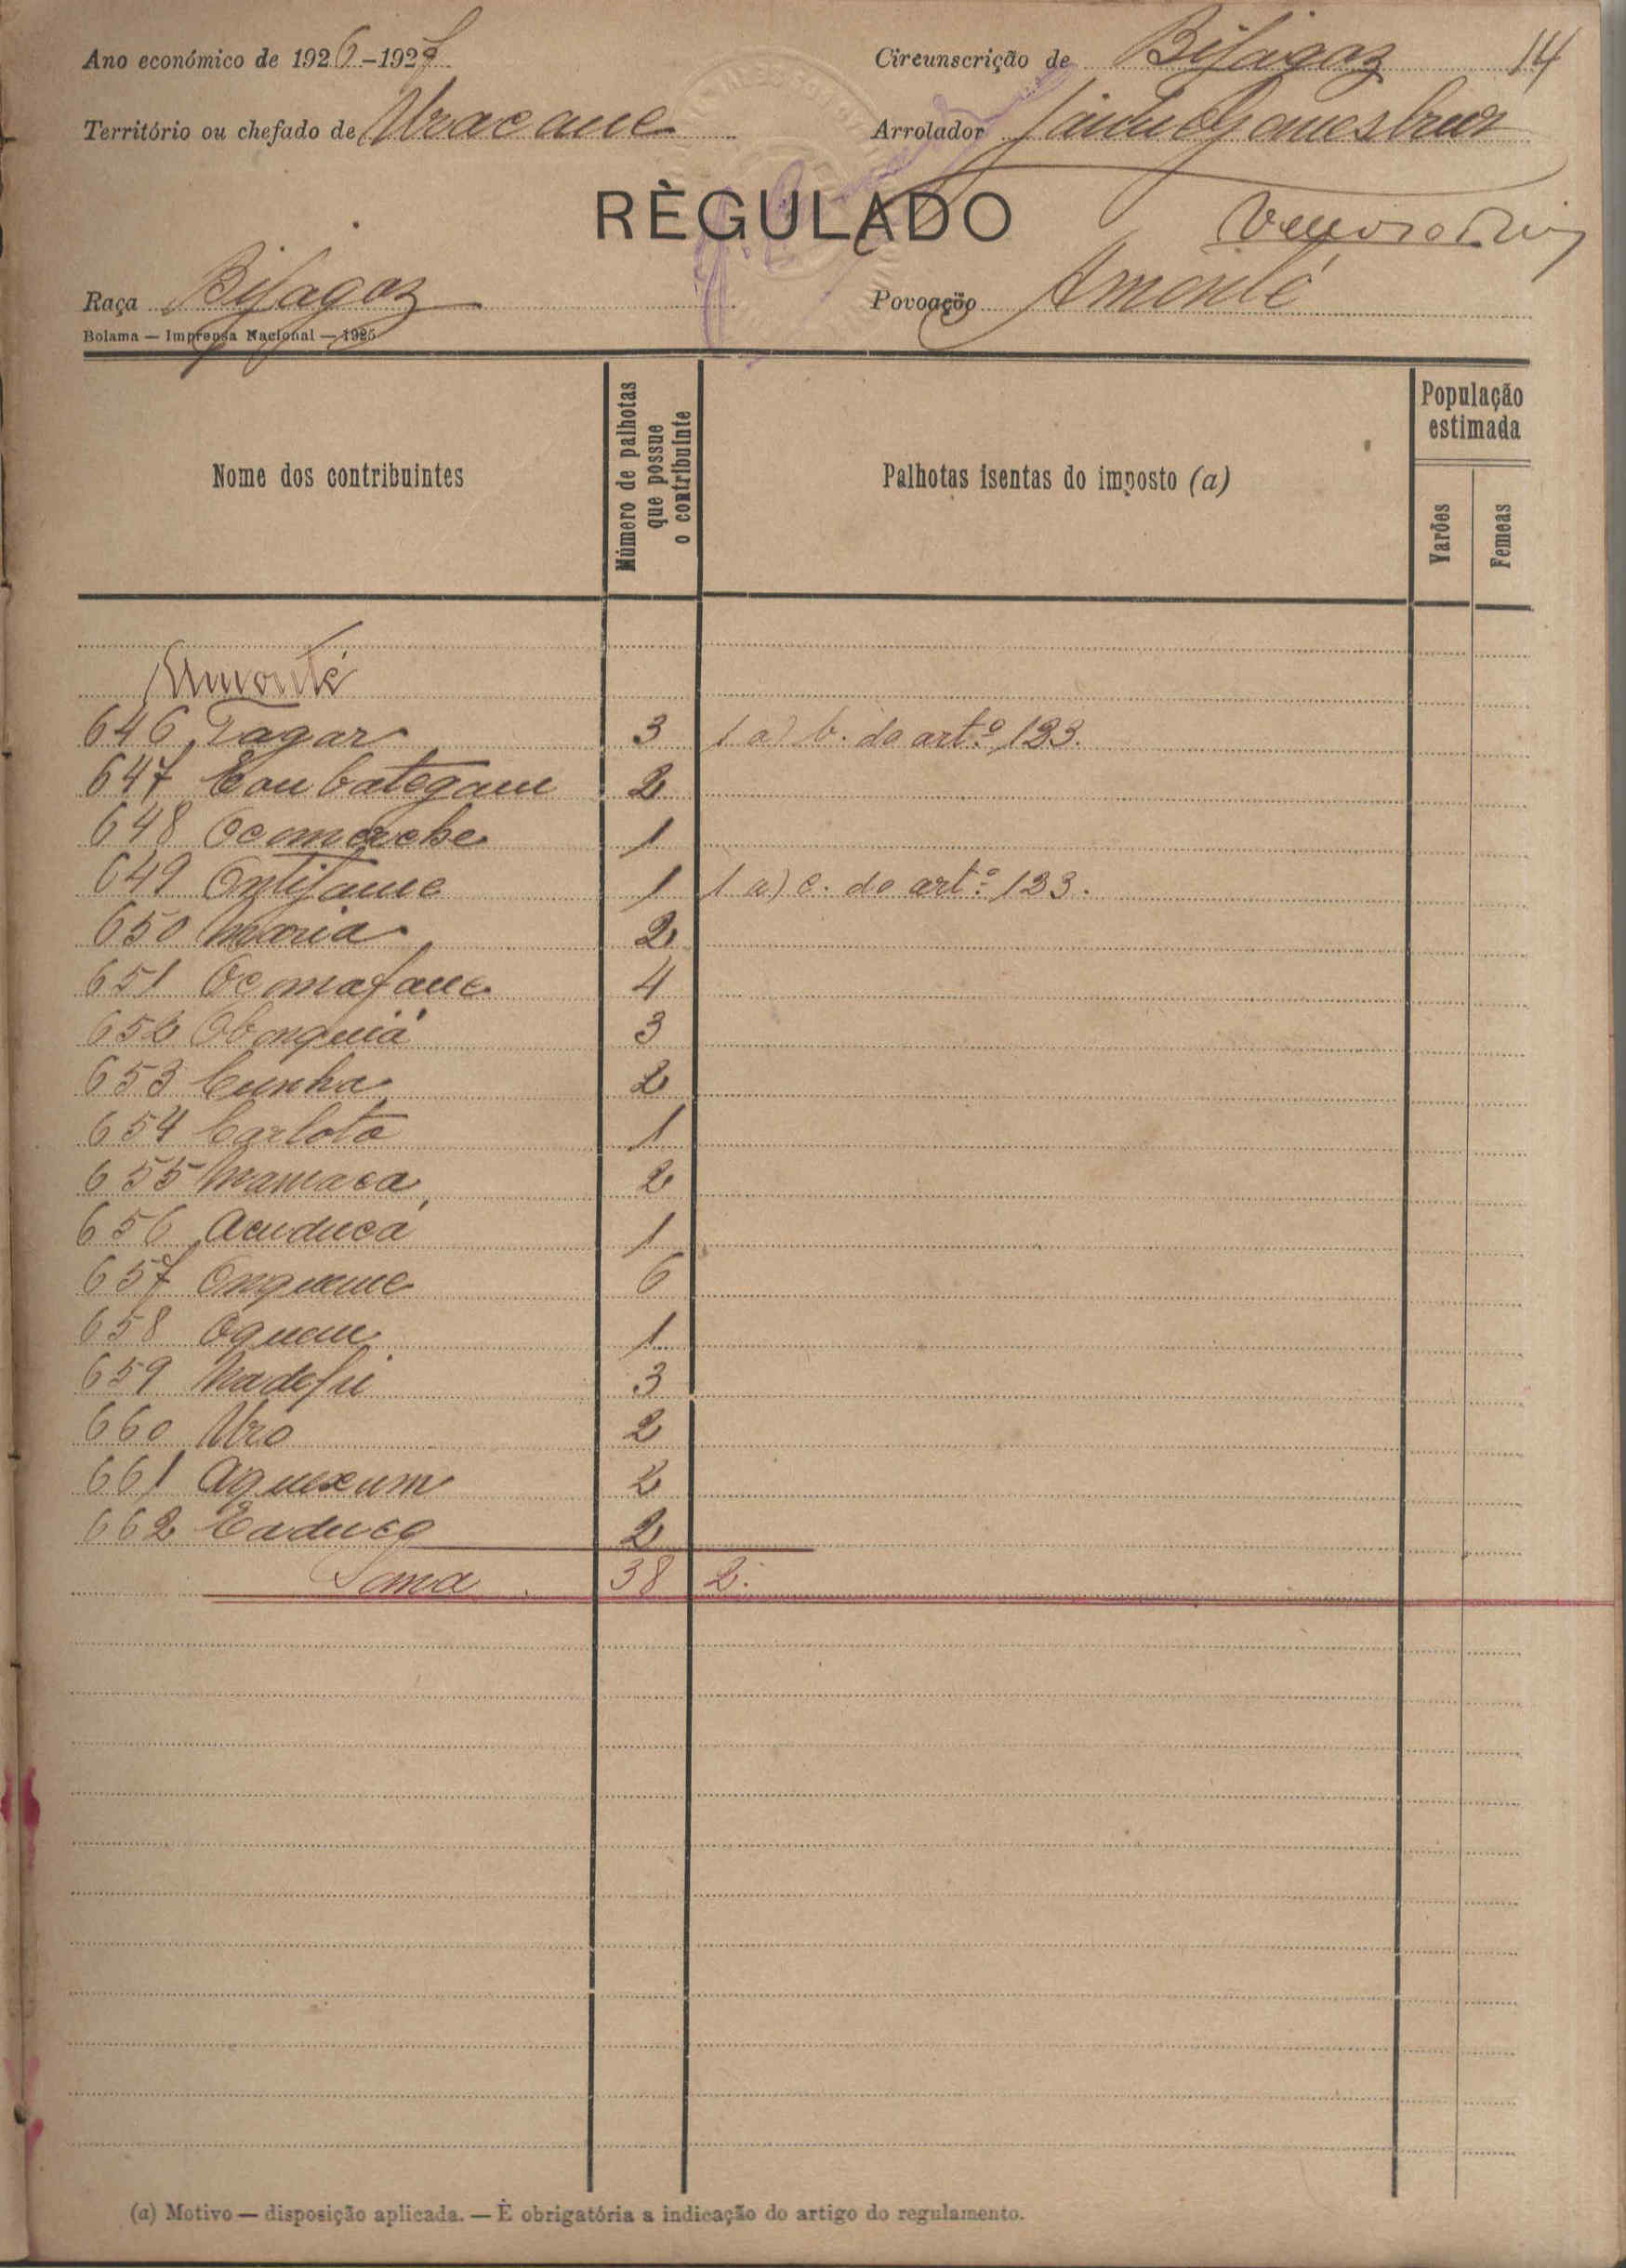 Ano económico de 1926-1927
Circunscrição de Bijagoz 14
Território ou chefado de Uracane
Arrolador Gomes
RÈGULADO
Raça Bijagoz
Povoação Amonté
Bolama — Imprensa Nacional — 1925
Nome dos contribuintes
Número de palhotas que possue o contribuinte
Palhotas isentas do imposto (a)
População estimada
Varões
Femeas
Amonté
646 Tagar 3 1 a) b. do artº 133.
647 2
648 1
649 Ontijame 1 1 a) c. do artº 133.
650 Maria 2
651 Ocomafane 4
652 Obonquiá 3
653 Cunha 2
654 Carlota 1
655 Mamaca 2
656 Acuducá 1
657 Onquame 6
658 Oquam 1
659 3
660 Uro 2
661 Aquexum 2
662 Caduca 2
Soma 38 2.
(a) Motivo — disposição aplicada. — É obrigatória a indicação do artigo do regulamento.